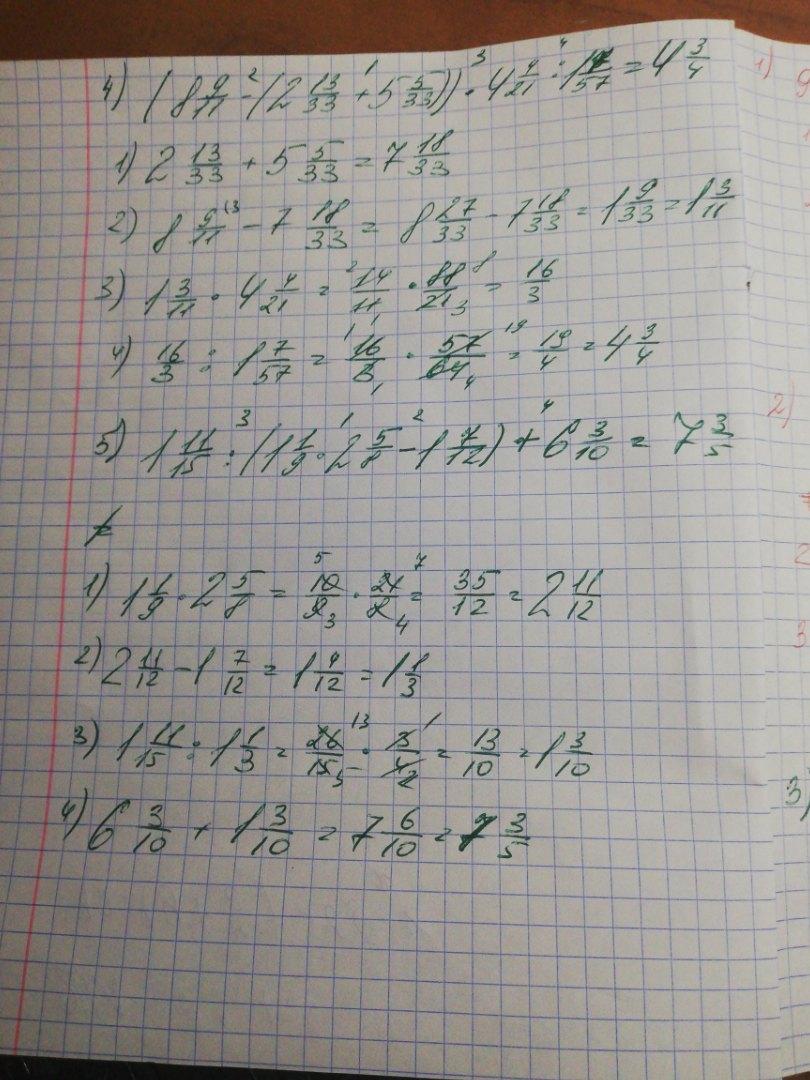 4) (8 9/11 - (2 13/33 + 5 5/33)) · 4 4/21 : 1 7/57 = 4 3/4
1) 2 13/33 + 5 5/33 = 7 18/33
2) 8 9/11 - 7 18/33 = 8 27/33 - 7 18/33 = 1 9/33 = 1 3/11
3) 1 3/11 · 4 4/21 = 14/11 · 88/21 = 16/3
4) 16/3 : 1 7/57 = 16/3 · 57/64 = 19/4 = 4 3/4
5) 1 11/15 : (1 1/9 · 2 5/8 - 1 7/12) + 6 3/10 = 7 3/5
1) 1 1/9 · 2 5/8 = 10/9 · 21/8 = 35/12 = 2 11/12
2) 2 11/12 - 1 7/12 = 1 4/12 = 1 1/3
3) 1 11/15 : 1 1/3 = 26/15 · 3/4 = 13/10 = 1 3/10
4) 6 3/10 + 1 3/10 = 7 6/10 = 7 3/5
1)
2)
3)